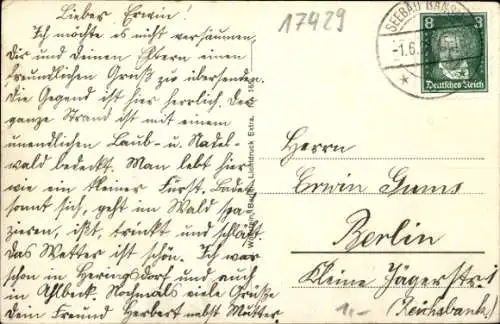 Lieber Erwin!
Ich möchte es nicht versäumen,
dir und deinen Eltern einen
freundlichen Gruß zu übersenden.
Die Gegend ist hier herrlich. Der
ganze Strand ist mit einem
unendlichen Laub- u. Nadel-
wald bedeckt. Man lebt hier
wie ein kleiner Fürst. Badet,
sonnt sich, geht im Wald spa-
zieren, ißt, trinkt und schläft.
Das Wetter ist schön. Ich war
schon in Heringsdorf und auch
in Ahlbeck. Nochmals viele Grüße
Dein Freund Herbert nebst Mutter.
17429
SEEBAD BANSIN
-1.6.
8
3
Deutsches Reich
Lichtdruck Extra.
Herrn
Erwin Gums
Berlin
Kleine Jägerstr. 1
(Reichsbank)
1,-